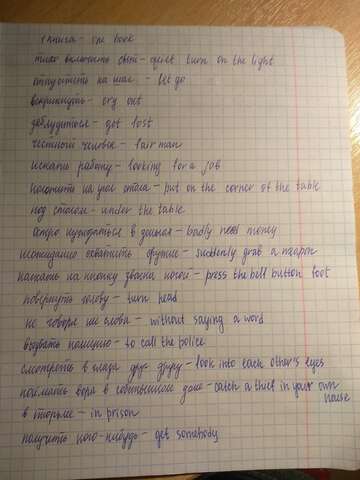 книга - the book
тихо включить свет - quiet turn on the light
отпустить - let go
вскрикнуть - cry out
заблудиться - got lost
честный человек - fair man
искать работу - looking for a job
положить на угол стола - put on the corner of the table
под столом - under the table
остро нуждаться в деньгах - badly need money
неожиданно схватить оружие - suddenly grab a weapon
нажать на кнопку звонка ногой - press the bell button foot
повернуть голову - turn head
не говоря ни слова - without saying a word
вызвать полицию - to call the police
смотреть в глаза друг другу - look into each other's eyes
поймать вора в собственном доме - catch a thief in your own
house
в тюрьме - in prison
получить кого-нибудь - get somebody